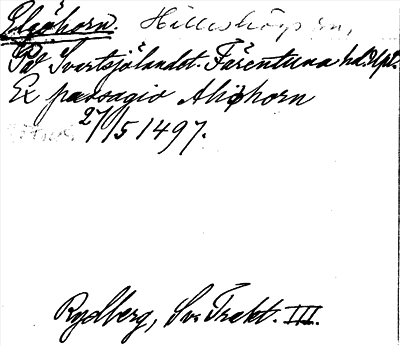 Elgöhorn. Hilleshögs sn,
På Svartsjölandet. Färentuna hd. Upl.
Ex passagio Aliøhorn
27/5 1497.
Rydberg, Sv. Trakt. III.